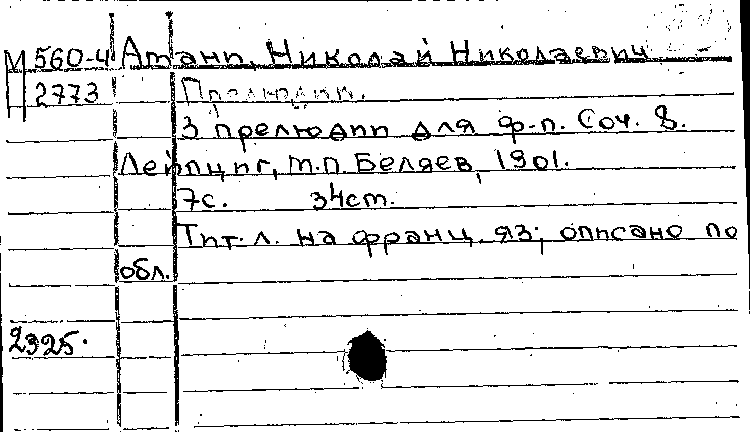 М 560-4 Амани, Николай Николаевич
2773 Прелюдии.
3 прелюдии для ф-п. Соч. 8.
Лейпциг, М.П. Беляев, 1901.
7с. 34см.
Тит. л. на франц. яз; описано по
обл.
2325.